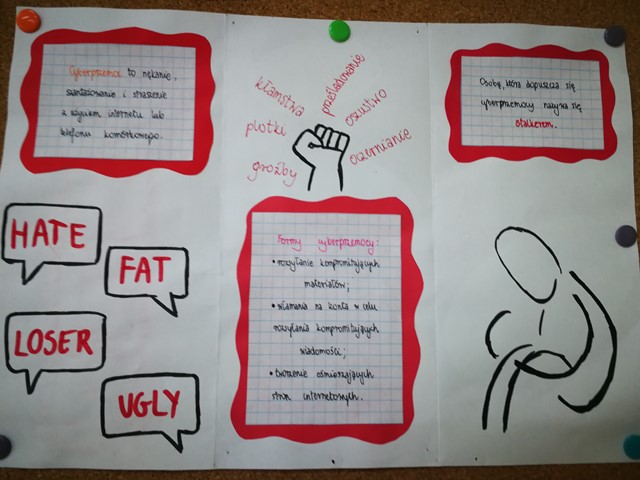 Cyberprzemoc to nękanie,
szantażowanie i straszenie
z użyciem internetu lub
telefonu komórkowego.
HATE
FAT
LOSER
UGLY
kłamstwa
prześladowanie
oszustwo
plotki
oczernianie
groźby
Formy cyberprzemocy:
• rozsyłanie kompromitujących
materiałów;
• włamania na konta w celu
rozsyłania kompromitujących
wiadomości;
• tworzenie ośmieszających
stron internetowych.
Osoba, która dopuszcza się
cyberprzemocy nazywa się
stalkerem.